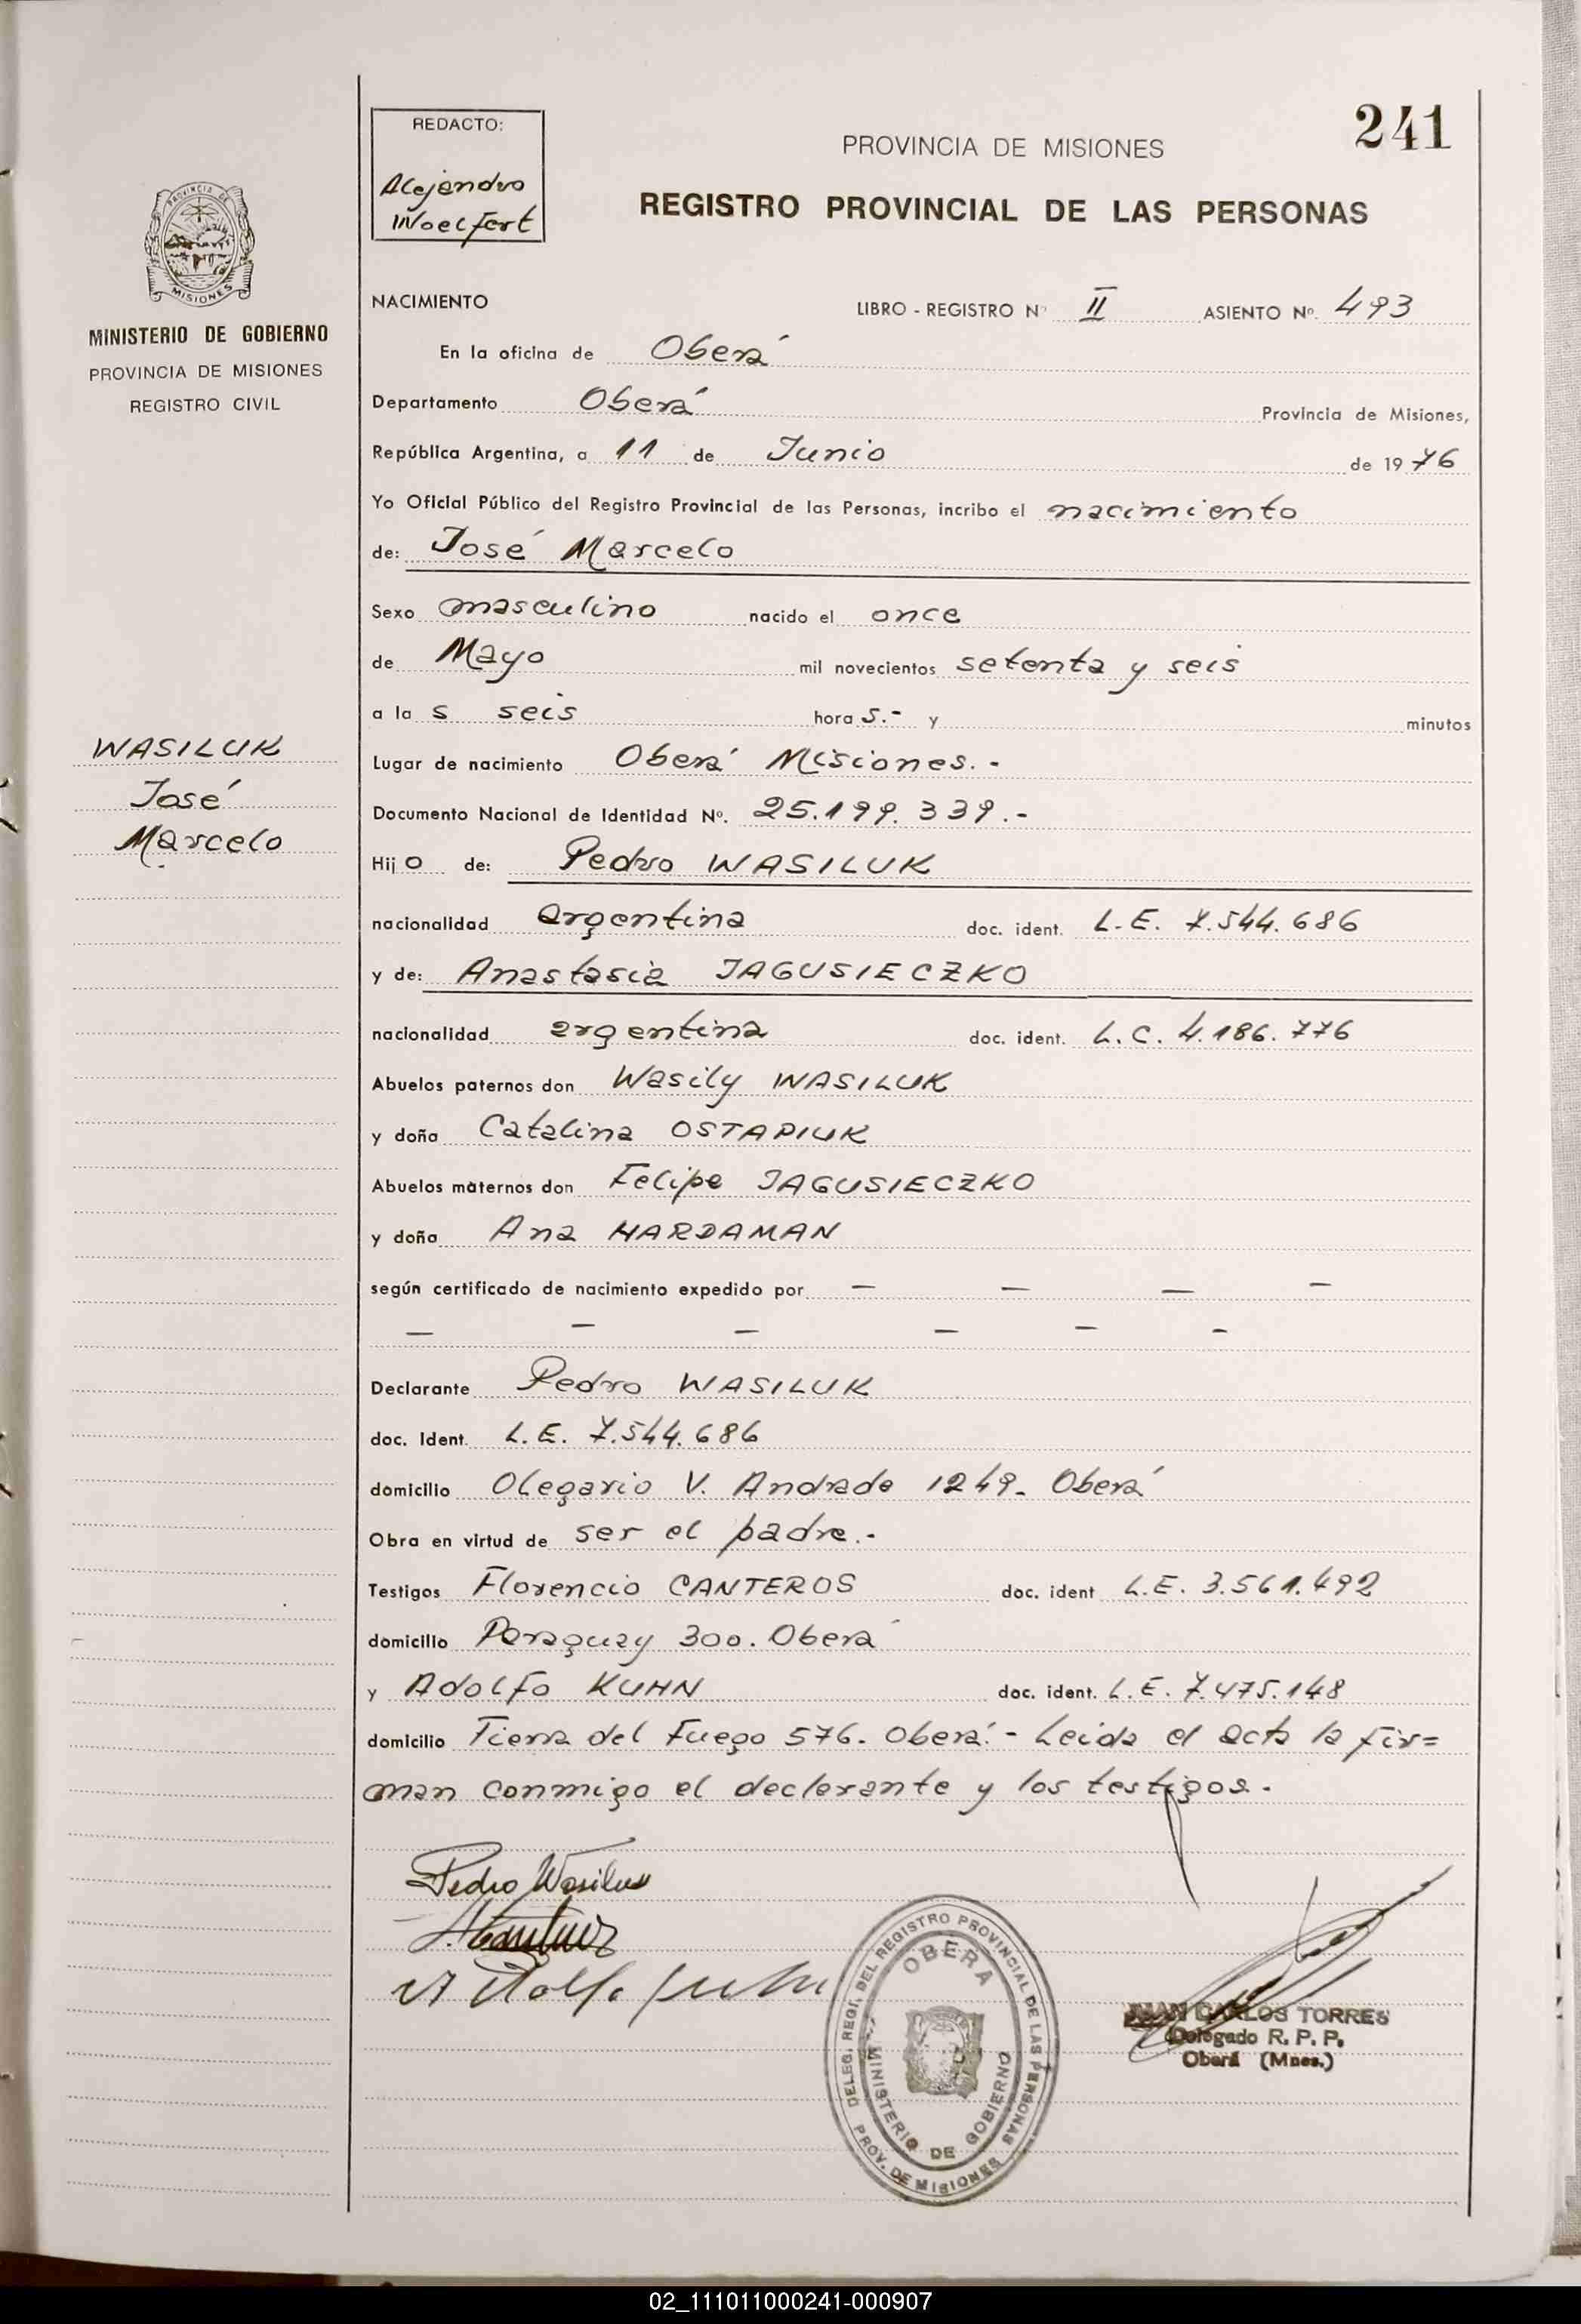 241
REDACTO:
Alejandro
Woelfert
PROVINCIA DE MISIONES
REGISTRO PROVINCIAL DE LAS PERSONAS
PROVINCIA DE
MISIONES
MINISTERIO DE GOBIERNO
PROVINCIA DE MISIONES
REGISTRO CIVIL
NACIMIENTO LIBRO - REGISTRO Nº II ASIENTO Nº. 493
En la oficina de Oberá
Departamento Oberá Provincia de Misiones,
República Argentina, a 11 de Junio de 1976
Yo Oficial Público del Registro Provincial de las Personas, incribo el nacimiento
de: José Marcelo
Sexo masculino nacido el once
de Mayo mil novecientos setenta y seis
a la s seis hora s.- y minutos
WASILUK
José
Marcelo
Lugar de nacimiento Oberá Misiones.-
Documento Nacional de Identidad Nº. 25.199.339.-
Hijo de: Pedro WASILUK
nacionalidad argentina doc. ident. L.E. 7.544.686
y de: Anastasia JAGUSIECZKO
nacionalidad argentina doc. ident. L.C. 4.186.776
Abuelos paternos don Wasily WASILUK
y doña Catalina OSTAPIUK
Abuelos maternos don Felipe JAGUSIECZKO
y doña Ana HARDAMAN
según certificado de nacimiento expedido por — — — —
— — — — — -
Declarante Pedro WASILUK
doc. Ident. L.E. 7.544.686
domicilio Olegario V. Andrade 1249- Oberá
Obra en virtud de ser el padre.-
Testigos Florencio CANTEROS doc. ident L.E. 3.561.492
domicilio Paraguay 300. Oberá
y Adolfo KUHN doc. ident. L.E. 7.475.148
domicilio Tierra del Fuego 576. Oberá.- Leída el acta la fir=
man conmigo el declarante y los testigos.-
Pedro Wasiluk
DELEG. REGI. DEL REGISTRO PROVINCIAL DE LAS PERSONAS
OBERA
MINISTERIO DE GOBIERNO
PROV. DE MISIONES
JUAN CARLOS TORRES
Delegado R. P. P.
Oberá (Mnes.)
02_111011000241-000907